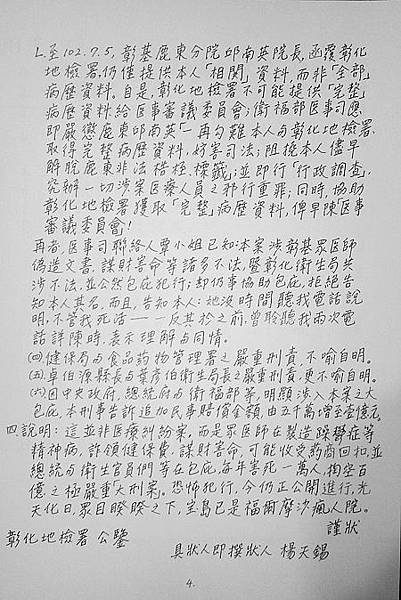 L.至102.7.5, 彰基鹿東分院邱南英院長,函覆彰化
地檢署,仍僅提供本人「相關」資料,而非「全部」
病歷資料。自是,彰化地檢署不可能提供「完整」
病歷資料給医事審議委員會;衛福部医事司應
即嚴懲鹿東邱南英「一再勾難本人与彰化地檢署,
取得完整病歷資料,妨害司法;阻撓本人儘早
解脫鹿東非法桎梏、標籤」;並即行「行政調查」,
究辦一切涉案医療人員之邪行重罪;同時,協助
彰化地檢署獲取「完整」病歷資料,俾早陳医事
審議委員會!
再者,医事司聯絡人 小姐已知:本案涉彰基眾医師
偽造文書、謀財害命等諸多不法,暨彰化衛生局共
涉不法,並公然包庇犯行;却仍事協助包庇,拒絕告
知本人其名,而且,告知本人:她沒時間聽我電話說
明,不管我死活——反其於之前,曾聆聽我兩次電
話詳陳時,表示理解与同情。
(四)健保局与食品葯物管理署之嚴重刑責,不喻自明。
(五)卓伯源縣長与葉彥伯衛生局長之嚴重刑責,更不喻自明。
(六)因中央政府,總統府与衛福部等,明顯涉入本案之大
包庇,本刑事告訴追加民事賠償金額,由五千萬增至壹億元。
四、說明:這並非医療糾紛案,而是眾医師在製造躁鬱症等
精神病,詐領健保費,謀財害命,可能收受葯商回扣,並
總統与衛生官員們等在包庇,每年害死一萬人,掏空百
億之極嚴重「大刑案」。恐怖犯行,今仍正公開進行,光
天化日,眾目睽睽之下,宝島已是福爾摩沙瘋人院。
謹狀
彰化地檢署 公鑒
具狀人即撰狀人 楊天錫
4.